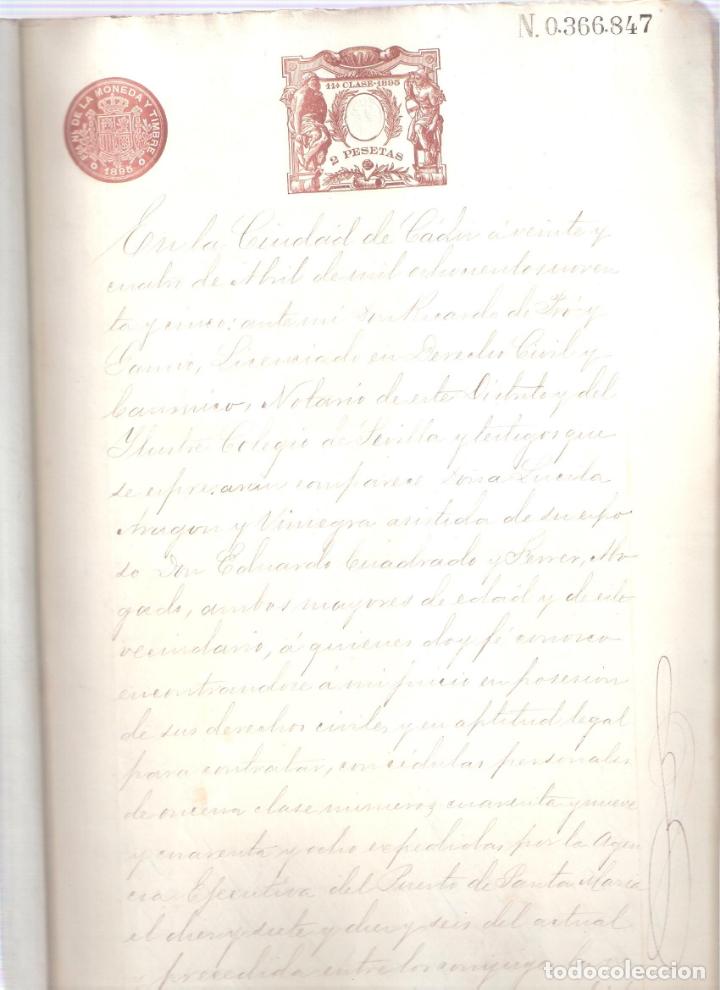 N. 0.366.847
11ª CLASE-1895
2 PESETAS
NAL DE LA MONEDA Y TIMBRE
1895
En la Ciudad de Cádiz á veinte y
cuatro de Abril de mil ochocientos noven
ta y cinco: ante mi Don Ricardo de Pró y
Licenciado en Derecho Civil y
Canonico, Notario de este Distrito y del
Ilustre Colegio de Sevilla y testigos que
se expresaran comparece Doña Lucila
Aragon y Viniegra asistida de su espo
so Don Eduardo Cuadrado y Ferrer, Abo
gado, ambos mayores de edad y de este
vecindario, á quienes doy fé conosco
encontrandose á mi juicio en posesion
de sus derechos civiles y en aptitud legal
para contratar, con cédulas personales
de oncena clase numeros cuarenta y nueve
y cuarenta y ocho expedidas por la Agen
cia Ejecutiva del Puerto de Santa Maria
el diez y siete y diez y seis del actual
y precedida entre los conyuges la
todocoleccion.net